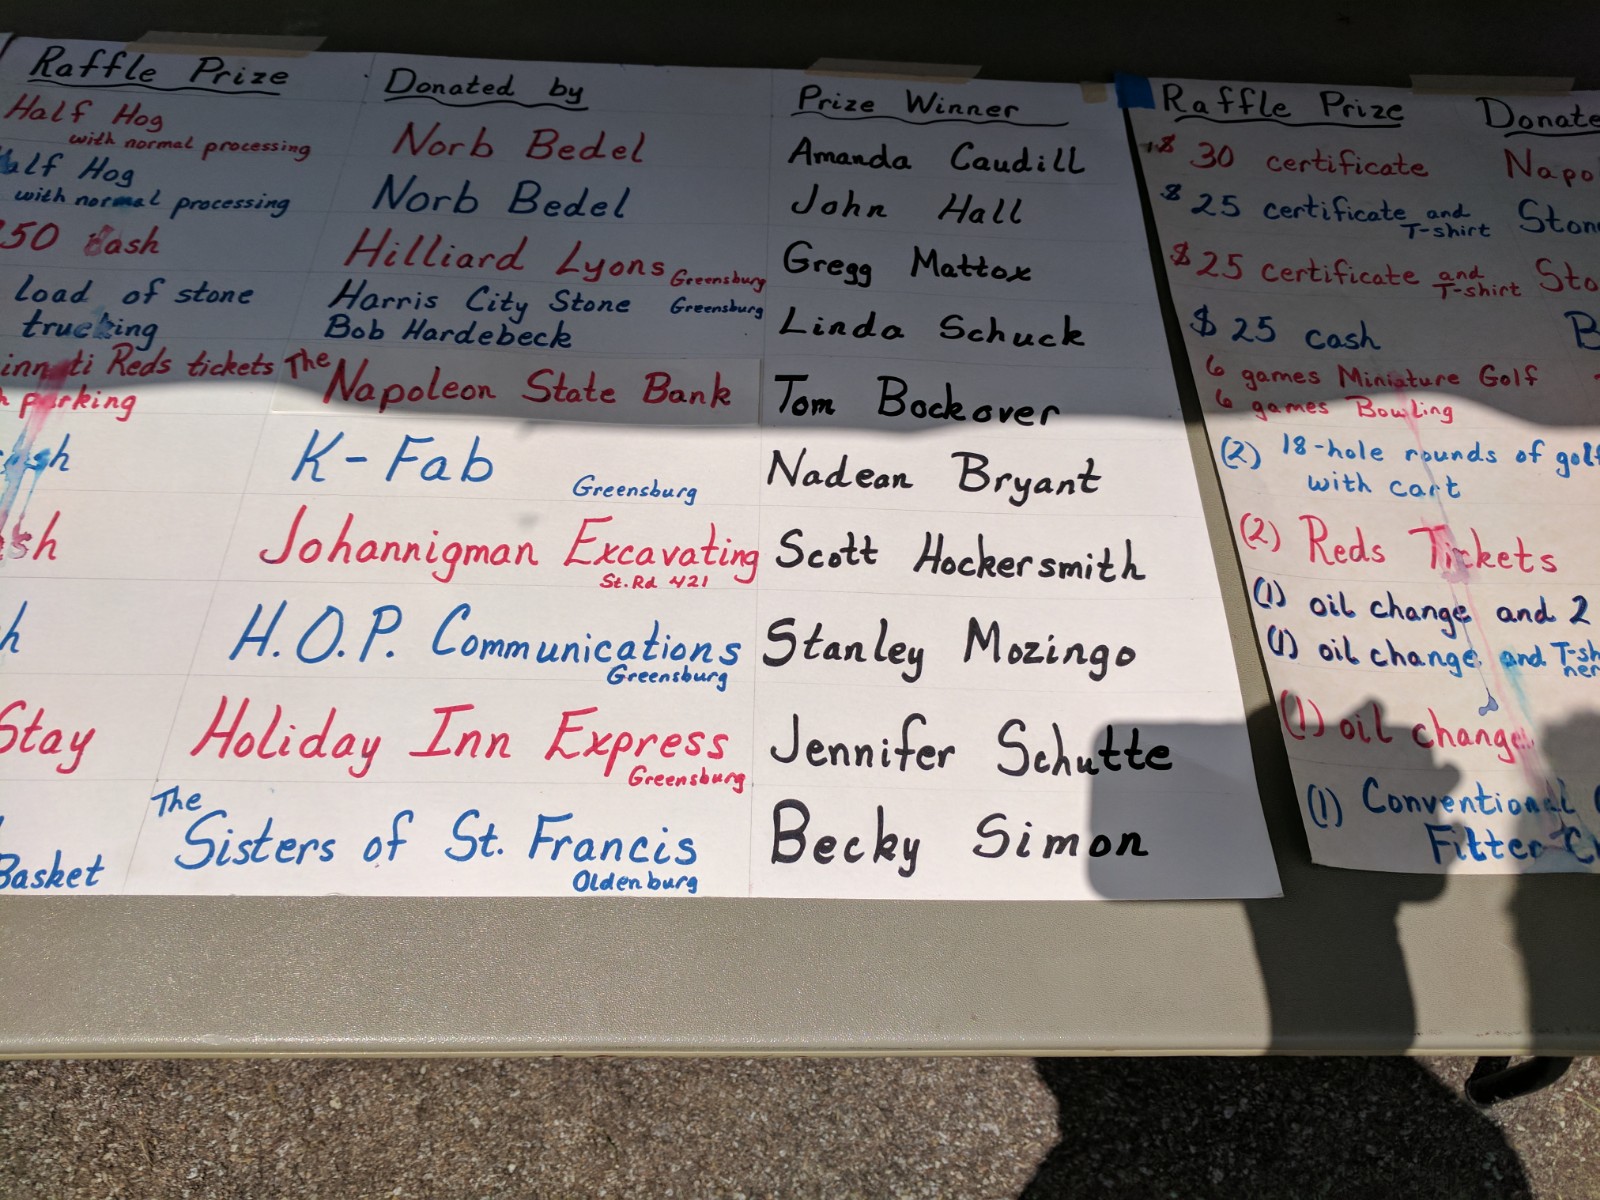 Raffle Prize Donated by Prize Winner
Half Hog
with normal processing Norb Bedel Amanda Caudill
Half Hog
with normal processing Norb Bedel John Hall
50 cash Hilliard Lyons Greensburg Gregg Mattox
load of stone Harris City Stone Greensburg
trucking Bob Hardebeck Linda Schuck
Reds tickets The Napoleon State Bank Tom Bockover
parking
K-Fab Greensburg Nadean Bryant
Johannigman Excavating Scott Hockersmith
St. Rd 421
H.O.P. Communications Stanley Mozingo
Greensburg
Stay Holiday Inn Express Jennifer Schutte
Greensburg
Basket The Sisters of St. Francis Becky Simon
Oldenburg
Raffle Prize Donate
$30 certificate Napo
$25 certificate and T-shirt Ston
$25 certificate and T-shirt Sto
$25 cash B
6 games Miniature Golf
6 games Bowling
(2) 18-hole rounds of golf
with cart
(2) Reds Tickets
(1) oil change and 2
(1) oil change and T-sh
(1) oil change
(1) Conventional